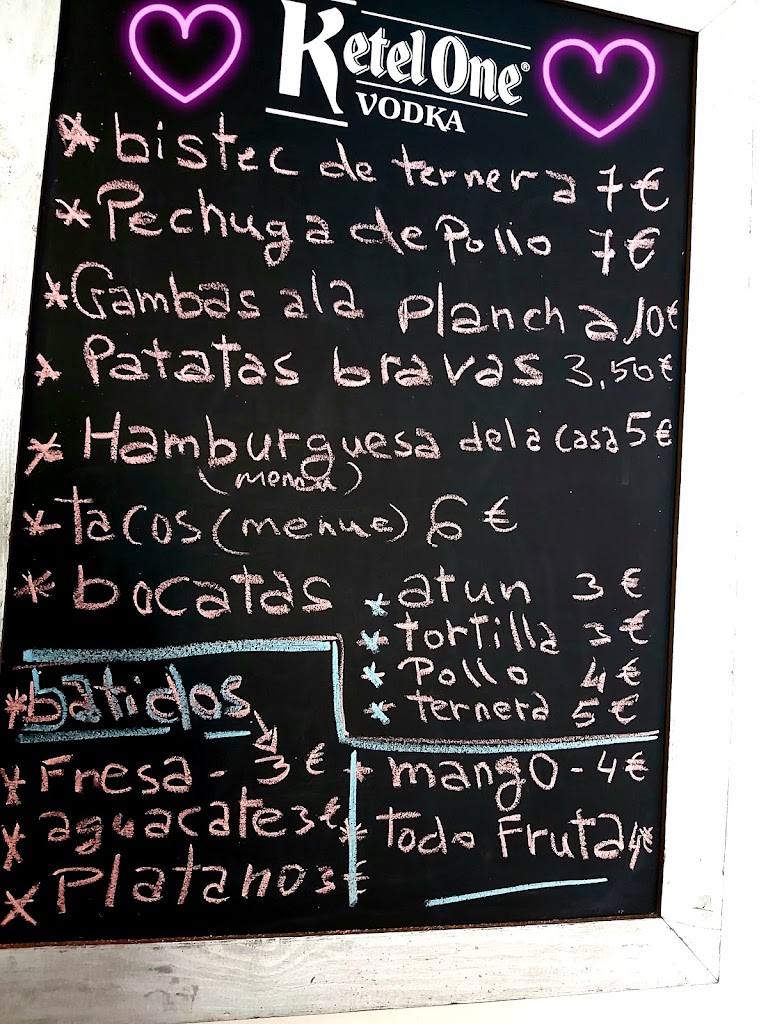 Ketel One®
VODKA
* bistec de ternera 7€
* Pechuga de Pollo 7€
* Gambas a la plancha 10€
* Patatas bravas 3,50€
* Hamburguesa de la casa 5€
* tacos (menue) 6€
* bocatas
* atun 3€
* tortilla 3€
* Pollo 4€
* ternera 5€
* batidos
* Fresa - 3€
* aguacate 3€
* Platano 3€
* mango - 4€
* Todo Fruta 4€